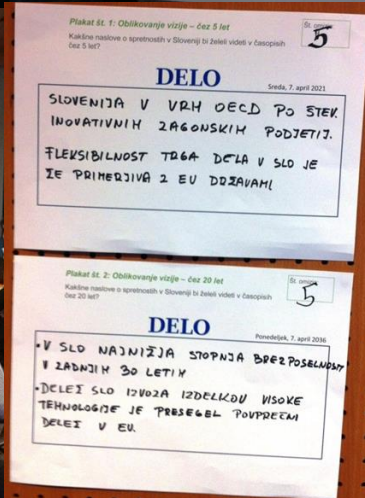 Plakat št. 1: Oblikovanje vizije – čez 5 let
Kakšne naslove o spretnostih v Sloveniji bi želeli videti v časopisih
čez 5 let?
Št. omizja
5
DELO
Sreda, 7. april 2021
SLOVENIJA V VRH OECD PO ŠTEV.
INOVATIVNIH ZAGONSKIH PODJETIJ.
FLEKSIBILNOST TRGA DELA V SLO JE
ŽE PRIMERJIVA Z EU DRŽAVAMI
Plakat št. 2: Oblikovanje vizije – čez 20 let
Kakšne naslove o spretnostih v Sloveniji bi želeli videti v časopisih
čez 20 let?
Št. omizja
5
DELO
Ponedeljek, 7. april 2036
• V SLO NAJNIŽJA STOPNJA BREZPOSELNOSTI
V ZADNJIH 30 LETIH
• DELEŽ SLO IZVOZA IZDELKOV VISOKE
TEHNOLOGIJE JE PRESEGEL POVPREČNI
DELEŽ V EU.